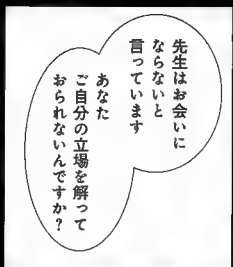 先生はお会いに
ならないと
言っています
あなた
ご自分の立場を解って
おられないんですか?